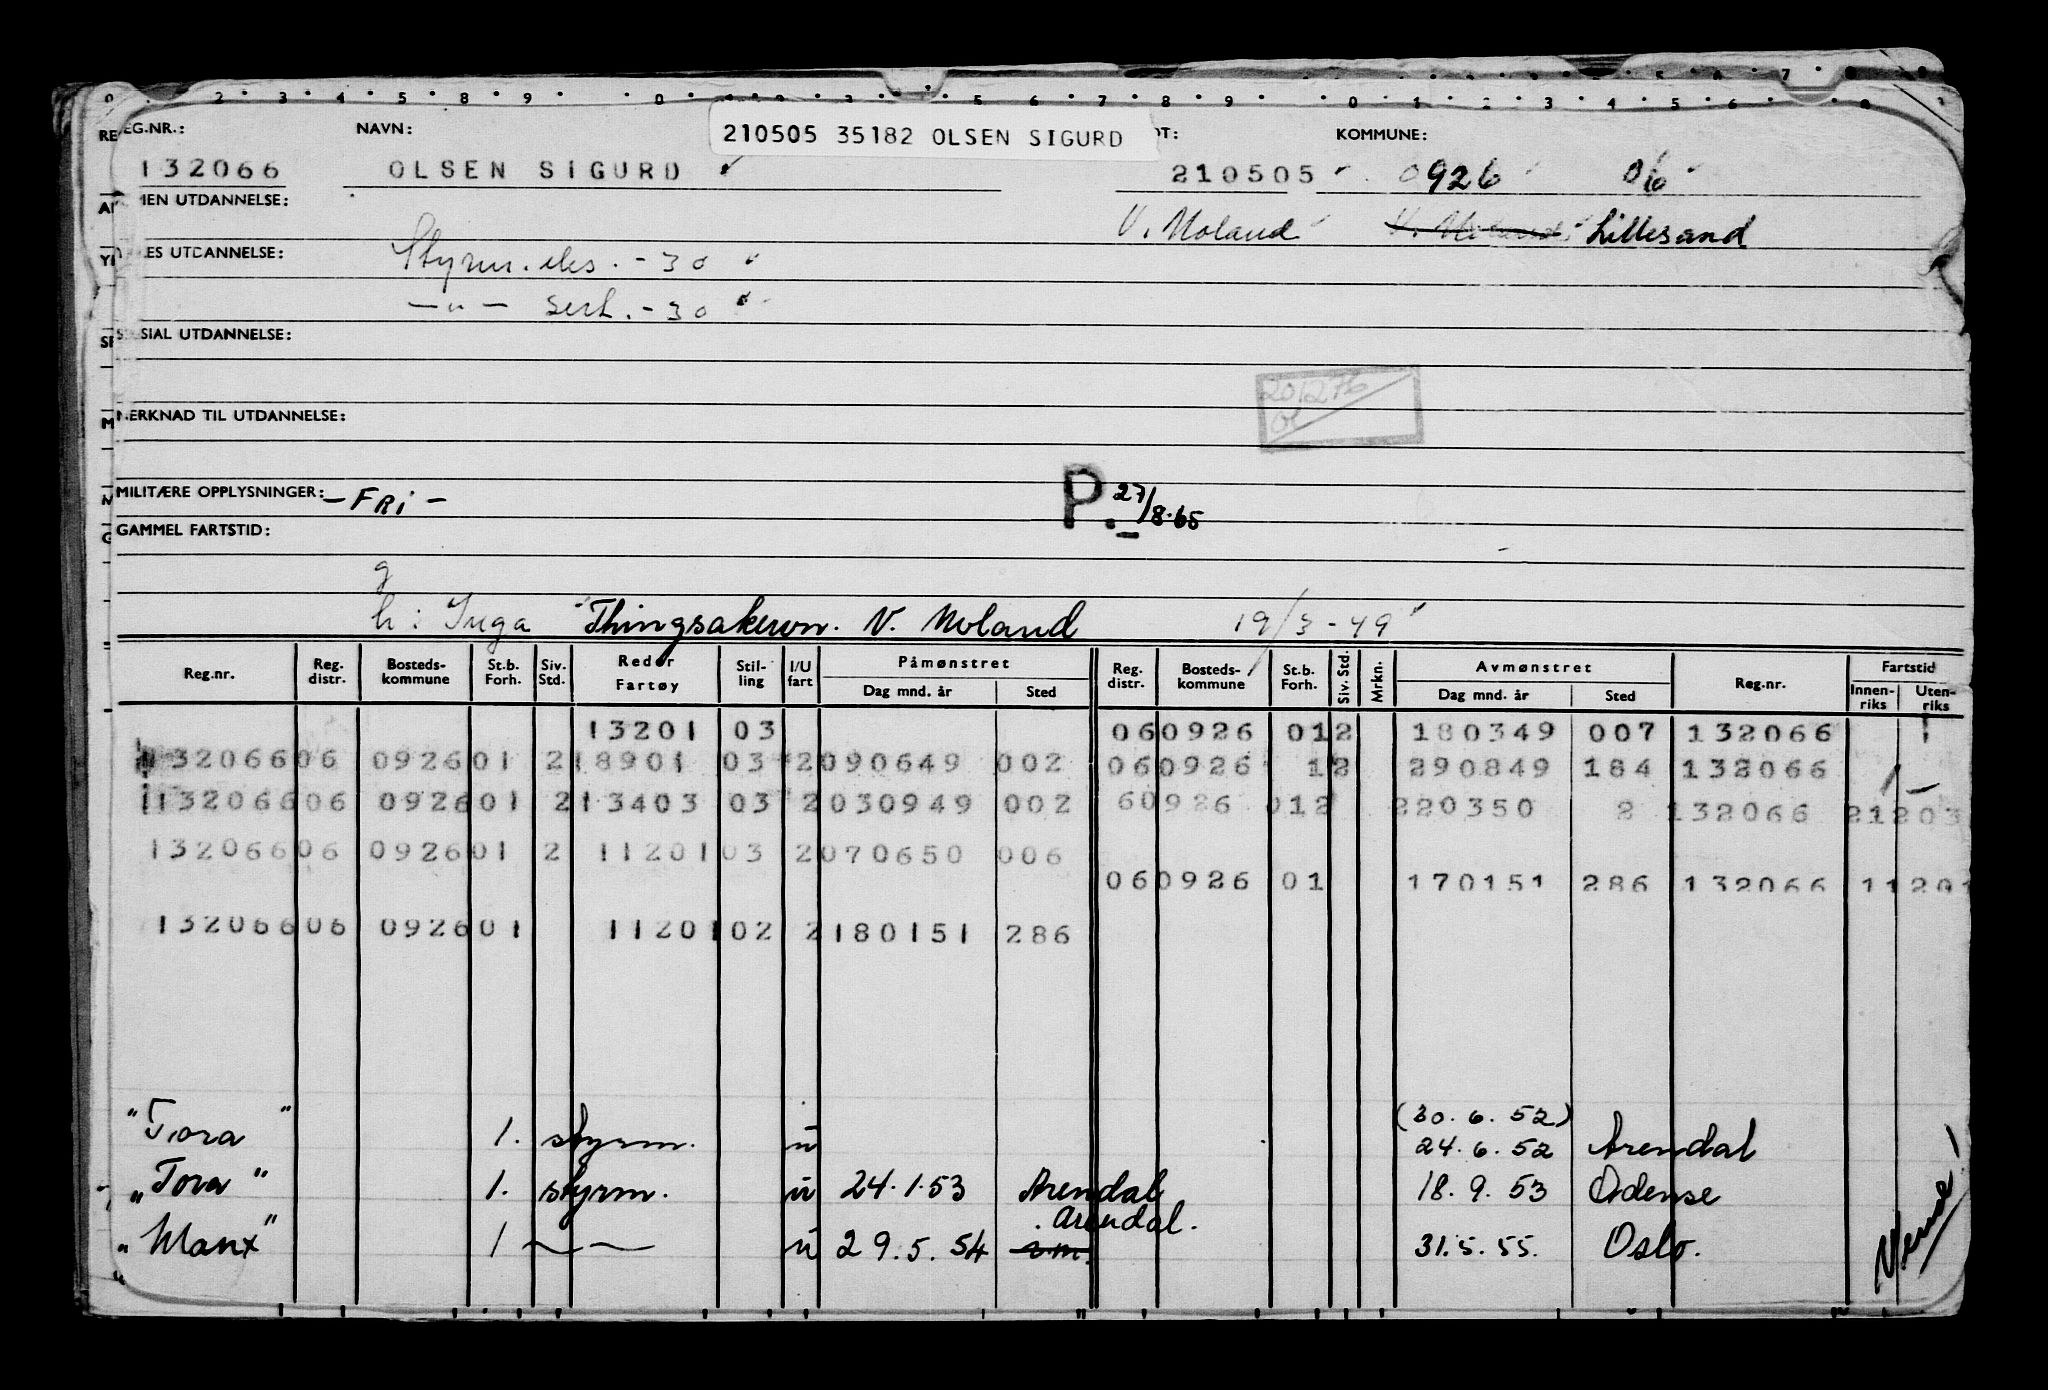 210505 35182 OLSEN SIGURD
REG.NR.: NAVN: DT: KOMMUNE:
132066 OLSEN SIGURD 210505 0926 06
ALMEN UTDANNELSE: V. Moland V. Moland Lillesand
YRKES UTDANNELSE: Styrm. eks. - 30
— " — sert. - 30
SPESIAL UTDANNELSE:
201276
MERKNAD TIL UTDANNELSE:
MILITÆRE OPPLYSNINGER: - FRI - P. 27/8.65
GAMMEL FARTSTID:
g
h: Inga Thingsakeren. V. Moland 19/3-49
Reg.nr. Reg. distr. Bosteds-kommune St.b. Forh. Siv. Std. Reder Fartøy Stil-ling I/U fart Påmønstret Dag mnd. år Sted Reg. distr. Bosteds-kommune St.b. Forh. Siv. Std. Mrkn. Avmønstret Dag mnd. år Sted Reg.nr. Fartstid Innen-riks Uten-riks
13201 03 060926 012 180349 007 132066
13206606 092601 218901 03 2090649 002 060926 12 290849 184 132066
13206606 092601 213403 03 2030949 002 60926 012 220350 2 132066 21203
13206606 092601 2 11201 03 2070650 006
060926 01 170151 286 132066 11201
13206606 092601 11201 02 2180151 286
(30.6.52)
"Tora" 1. styrm. u 24.6.52 Arendal
"Tora" 1. styrm. u 24.1.53 Arendal 18.9.53 Odense
Arendal.
"Manx" 1 — — u 29.5.54 31.5.55. Oslo.
Vend!